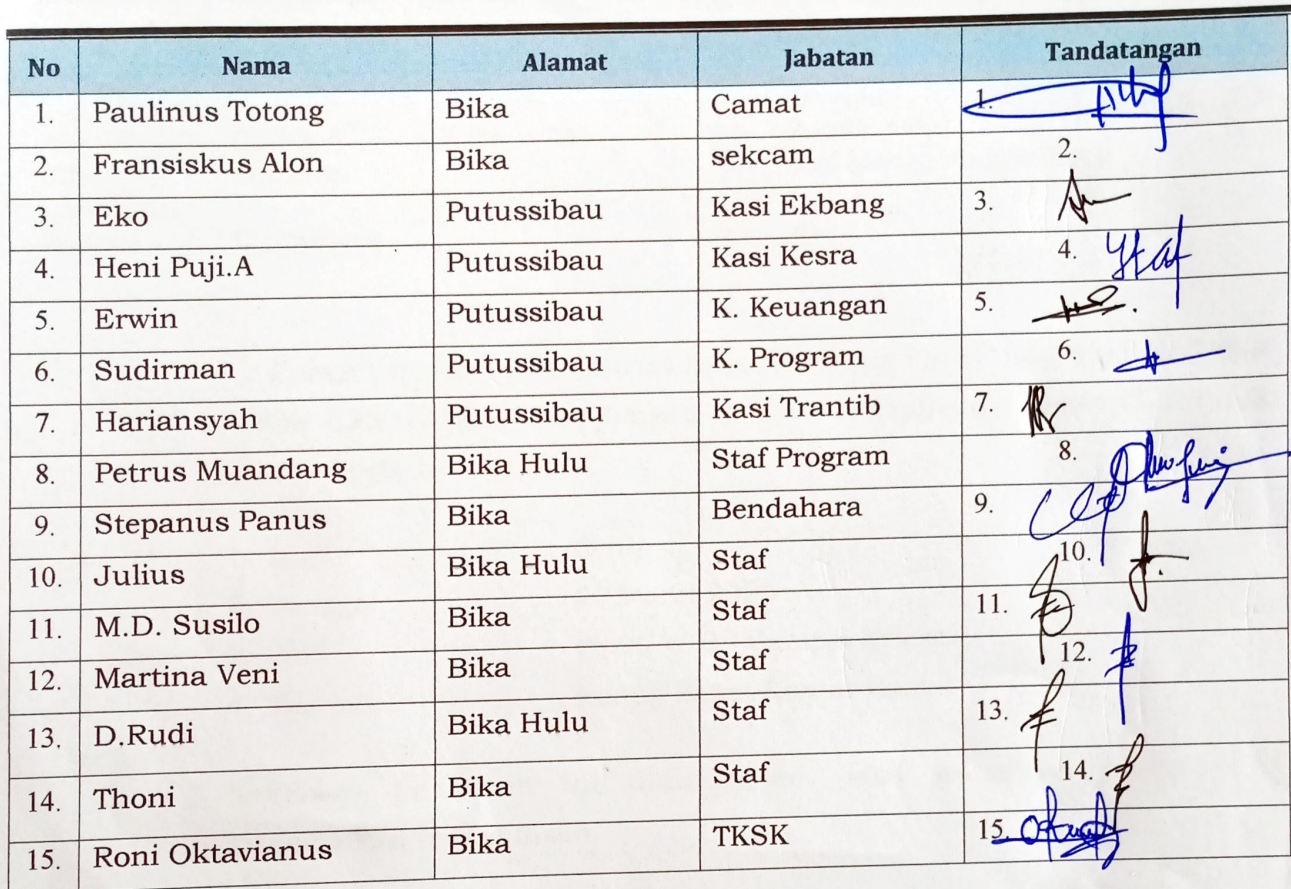 No Nama Alamat Jabatan Tandatangan
1. Paulinus Totong Bika Camat 1.
2. Fransiskus Alon Bika sekcam 2.
3. Eko Putussibau Kasi Ekbang 3.
4. Heni Puji.A Putussibau Kasi Kesra 4.
5. Erwin Putussibau K. Keuangan 5.
6. Sudirman Putussibau K. Program 6.
7. Hariansyah Putussibau Kasi Trantib 7.
8. Petrus Muandang Bika Hulu Staf Program 8.
9. Stepanus Panus Bika Bendahara 9.
10. Julius Bika Hulu Staf 10.
11. M.D. Susilo Bika Staf 11.
12. Martina Veni Bika Staf 12.
13. D.Rudi Bika Hulu Staf 13.
14. Thoni Bika Staf 14.
15. Roni Oktavianus Bika TKSK 15.